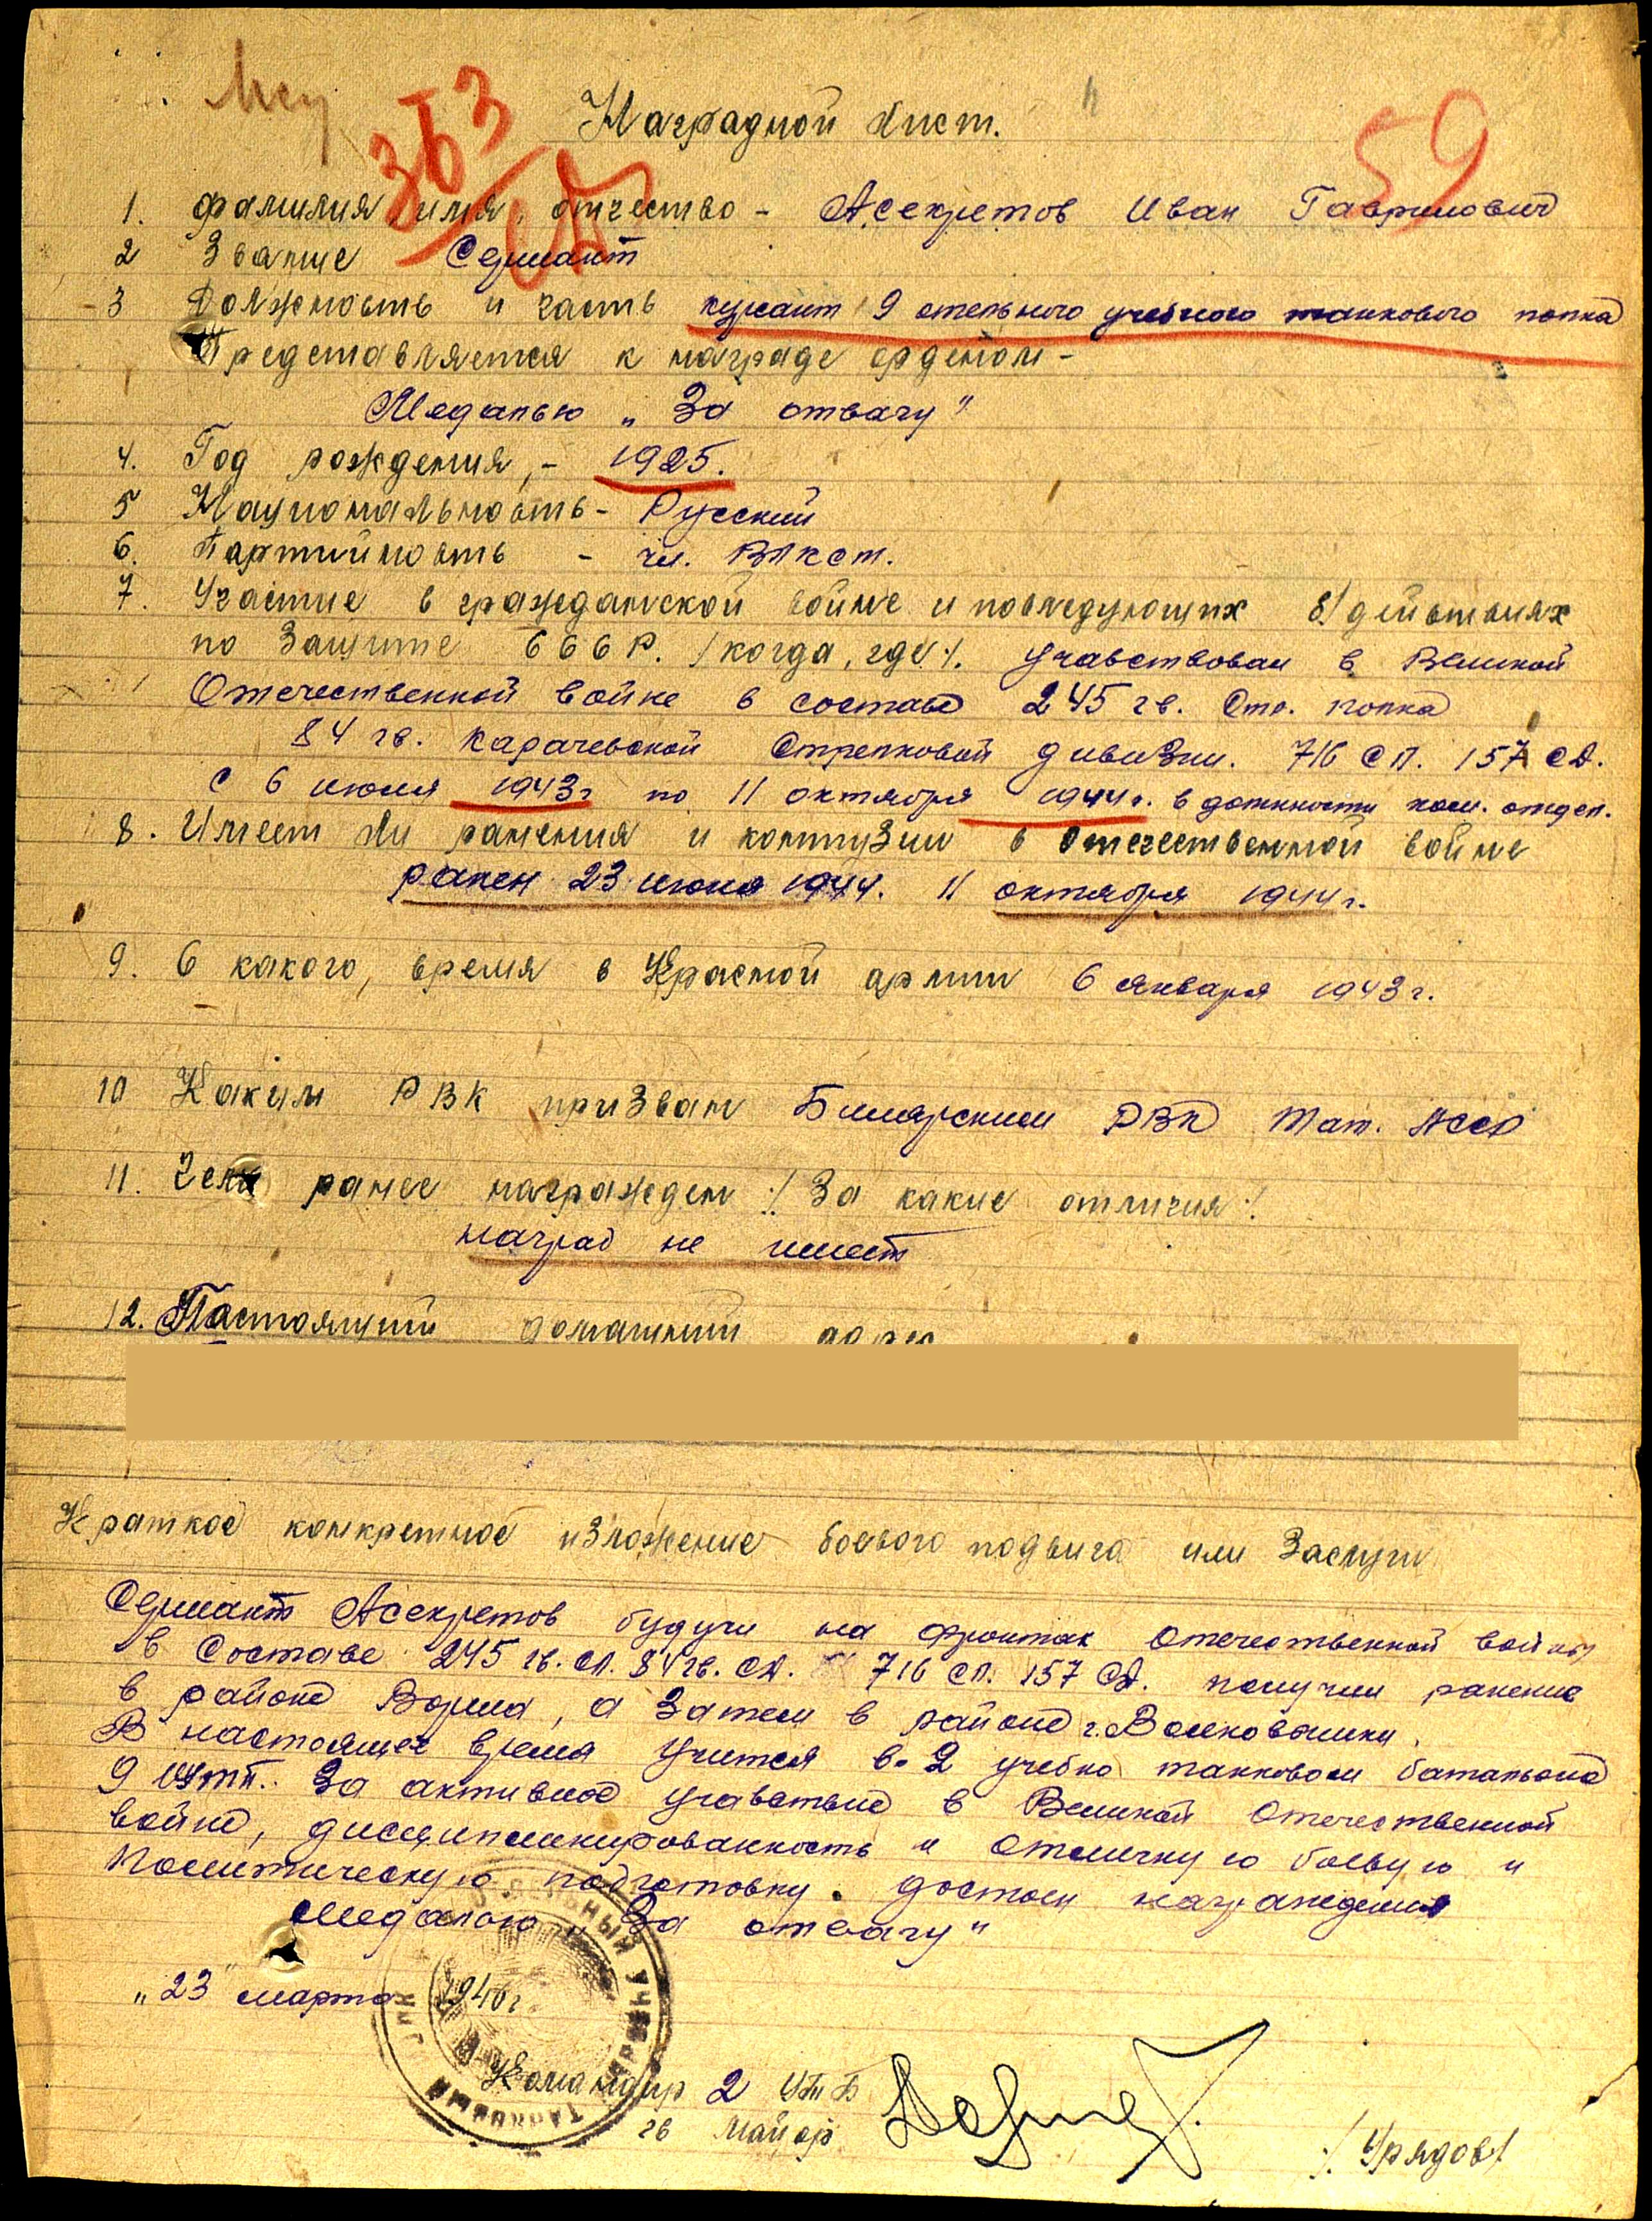 363
59
Наградной Лист.
1. Фамилия, имя, отчество - Асекретов Иван Гаврилович
2 Звание Сержант
3 Должность и часть курсант 9 отельного учебного танкового полка
Представляется к награде орденом -
Медалью „За отвагу"
4. Год рождения, - 1925.
5 Национальность - Русский
6. Партийность - чл. ВЛКСМ.
7. Участие в гражданской войне и последующих б/действиях
по защите СССР. /когда, где/. Учавствовал в Великой
Отечественной войне в составе 245 гв. Стр. полка
84 гв. Карачевской Стрелковой дивизии. 716 СП. 157 СД.
с 6 июля 1943г по 11 октября 1944г. в должности ком. отдел.
8. Имеет ли ранения и контузии в Отечественной войне
ранен 23 июня 1944. 11 октября 1944 г.
9. С какого, время в Красной армии 6 января 1943 г.
10 Каким РВК призван Билярским РВК Тат. АССР
11. Чем ранее награжден /За какие отличия/
наград не имеет
12. Постоянный домашний адрес
Краткое конкретное изложение боевого подвига или Заслуги
Сержант Асекретов будучи на фронтах Отечественной войны
в Составе 245 гв. сп. 84 гв. СД. 716 СП. 157 СД. получил ранение
в районе Ворша, а затем в районе г. Волковышки.
В настоящее время учится в 2 учебно танковом батальоне
9 оутп. За активное учавствие в Великой Отечественной
войне, дисциплинированность и отличную боевую и
политическую подготовку. достоин награждения
Медалью „За отвагу"
„23" марта 1946 г
Командир 2 УТБ
гв майор
/Урядов/